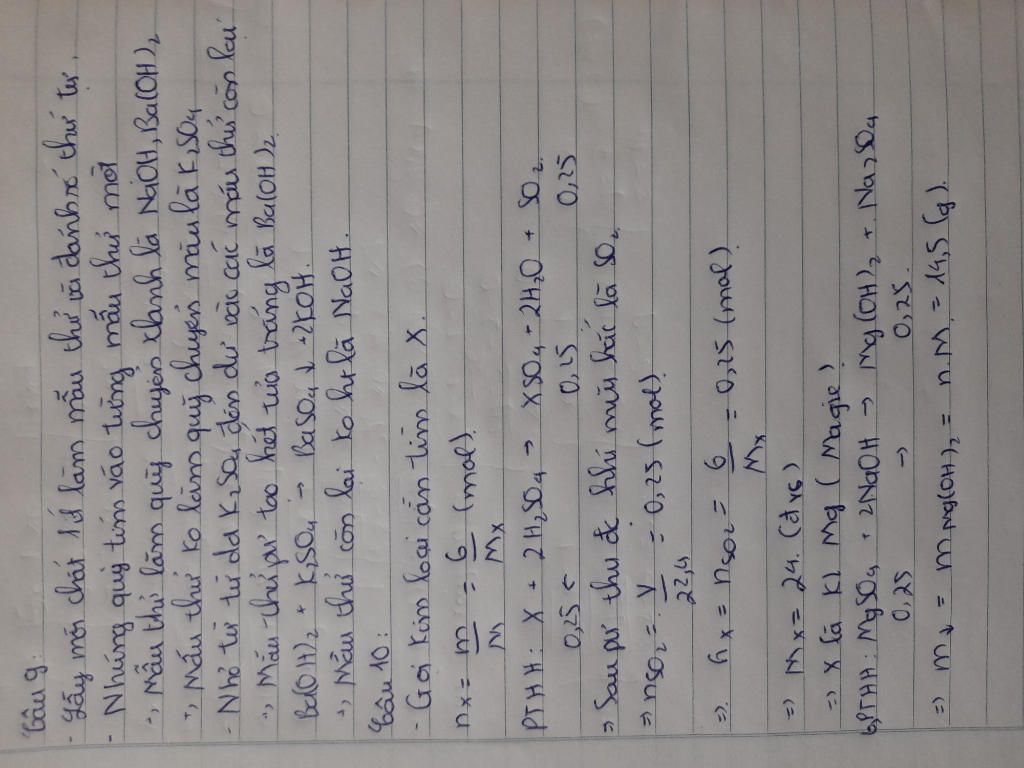 Câu 9:
- Lấy mỗi chất 1 ít làm mẫu thử và đánh số thứ tự.
- Nhúng quỳ tím vào từng mẫu thử mỗi
+, Mẫu thử làm quỳ chuyển xanh là NaOH, Ba(OH)2
+, Mẫu thử ko làm quỳ chuyển màu là K2SO4
- Nhỏ từ từ dd K2SO4 đến dư vào các mẫu thử còn lại
+, Mẫu thử pứ tạo kết tủa trắng là Ba(OH)2
Ba(OH)2 + K2SO4 → BaSO4↓ + 2KOH.
+, Mẫu thử còn lại ko ht là NaOH.
Câu 10:
- Gọi kim loại cần tìm là X.
nX = m/M = 6/Mx (mol)
PTHH: X + 2H2SO4 → XSO4 + 2H2O + SO2
0,25 ← 0,25 0,25
⇒ Sau pứ thu đc khí mùi hắc là SO2
⇒ nSO2 = V/22,4 = 0,25 (mol)
⇒ nx = nSO2 = 6/Mx = 0,25 (mol)
⇒ Mx = 24. (đvc)
⇒ X là Kl Mg (Magie)
b, PTHH: MgSO4 + 2NaOH → Mg(OH)2 + Na2SO4
0,25 → 0,25
⇒ m↓ = mMg(OH)2 = n.M = 14,5 (g)